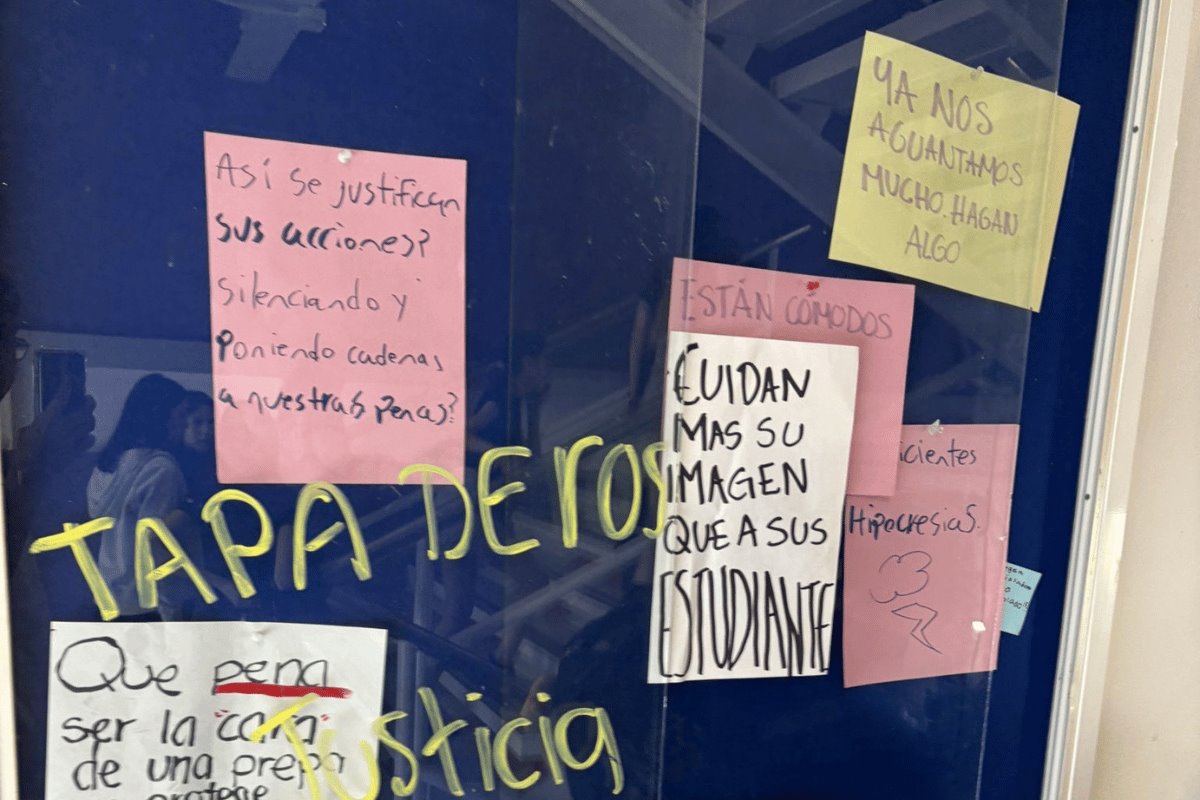 Así se justifican
sus acciones?
silenciando y
Poniendo cadenas
a nuestras penas?
YA NOS
AGUANTAMOS
MUCHO. HAGAN
ALGO
ESTÁN CÓMODOS
CUIDAN
MAS SU
IMAGEN
QUE A SUS
ESTUDIANTE
icientes
Hipocresias.
TAPADEROS
Que pena
ser la "cara"
de una prepa
protege
Justicia